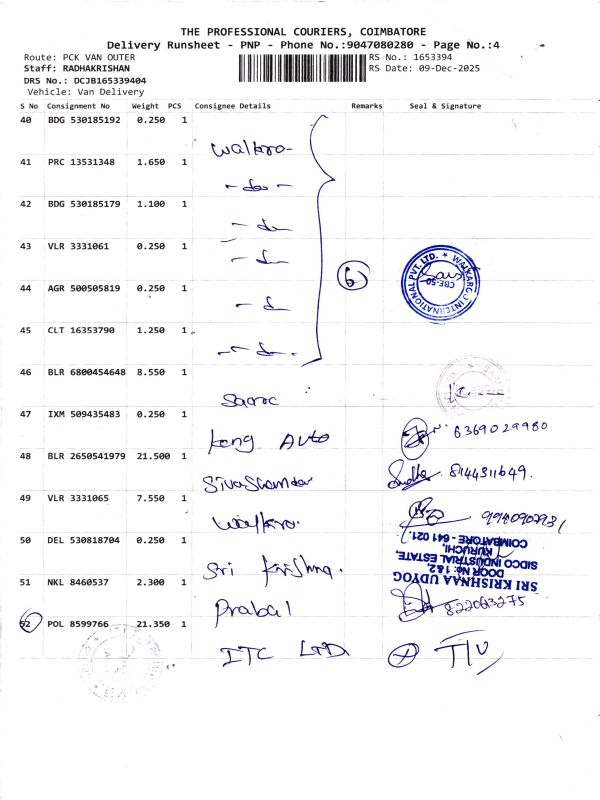 THE PROFESSIONAL COURIERS, COIMBATORE
Delivery Runsheet - PNP - Phone No.:9047080280 - Page No.:4
Route: PCK VAN OUTER
RS No.: 1653394
Staff: RADHAKRISHAN
RS Date: 09-Dec-2025
DRS No.: DCJB165339404
Vehicle: Van Delivery
S No Consignment No Weight PCS Consignee Details Remarks Seal & Signature
40 BDG 530185192 0.250 1
Walkro-
41 PRC 13531348 1.650 1
- do -
42 BDG 530185179 1.100 1
43 VLR 3331061 0.250 1
6
44 AGR 500505819 0.250 1
45 CLT 16353790 1.250 1
46 BLR 6800454648 8.550 1
47 IXM 509435483 0.250 1
Keng Auto
6369029980
48 BLR 2650541979 21.500 1
8144311649.
49 VLR 3331065 7.550 1
Walkro.
50 DEL 530818704 0.250 1
Sri Krishna.
SRI KRISHNAA UDYOG
DOOR No: 1&2,
SIDCO INDUSTRIAL ESTATE,
KURUCHI,
COIMBATORE - 641 021.
51 NKL 8460537 2.300 1
Prabal
52 POL 8599766 21.350 1
ITC LTD